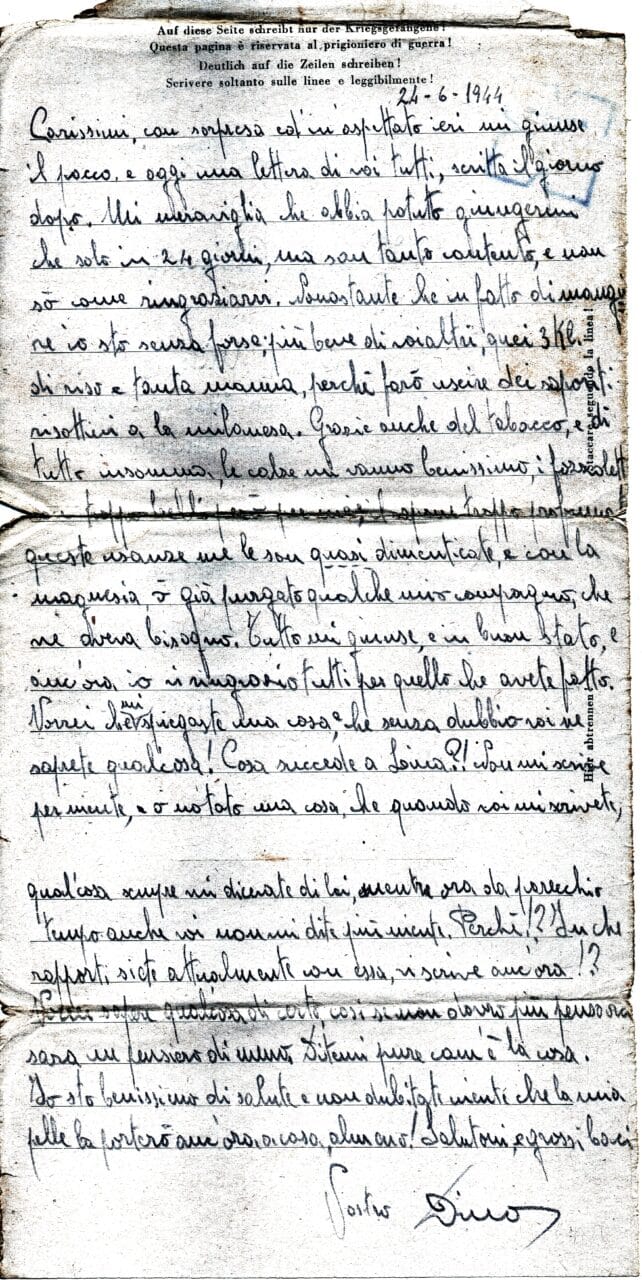 Auf diese Seite schreibt nur der Kriegsgefangene!
Questa pagina è riservata al prigioniero di guerra!
Deutlich auf die Zeilen schreiben!
Scrivere soltanto sulle linee e leggibilmente!
24-6-1944
Carissimi, con sorpresa ed in'aspettato ieri mi giunse
il pacco, e oggi una lettera di voi tutti, scritta il giorno
dopo. Mi meraviglia che abbia potuto giungermi
che solo in 24 giorni, ma son tanto contento, e non
sò come ringraziarvi. Nonostante che in fatto di mangia
re io sto senza forse, più bene di voialtri, quei 3 Kl.
di riso è tanta manna, perchè farò uscire dei saporiti
risottini a la milanesa. Grazie anche del tabacco, e di
tutto insomma, le calze mi vanno benissimo, i fazzoletti
troppo belli però per me, il sapone troppo profumato
queste usanze me le son quasi dimenticate, e con la
magnesia, ò già purgato qualche mio compagno, che
ne aveva bisogno. Tutto mi giunse, e in buon stato, e
anc'ora io vi ringrazio tutti per quello che avete fatto.
Vorrei che mi spiegaste una cosa, che senza dubbio voi ne
sapete qualcosa! Cosa succede a Lina?! Non mi scrive
per niente, e o notato una cosa, che quando voi mi scrivete,
qual'cosa sempre mi dicevate di lei, mentre ora da parecchio
tempo anche voi non mi dite più niente. Perchè!? In che
rapporti siete attualmente con essa, vi scrive anc'ora!?
Vorrei sapere qualcosa di certo, così se non dovrò più pensarci
sarà un pensiero di meno. Ditemi pure com'è la cosa.
Io sto benissimo di salute e non dubitate niente che la mia
pelle la porterò anc'ora a casa, almeno! Salutoni, e grossi baci
Vostro Dino
Hier abtrennen!
Staccare seguendo la linea!